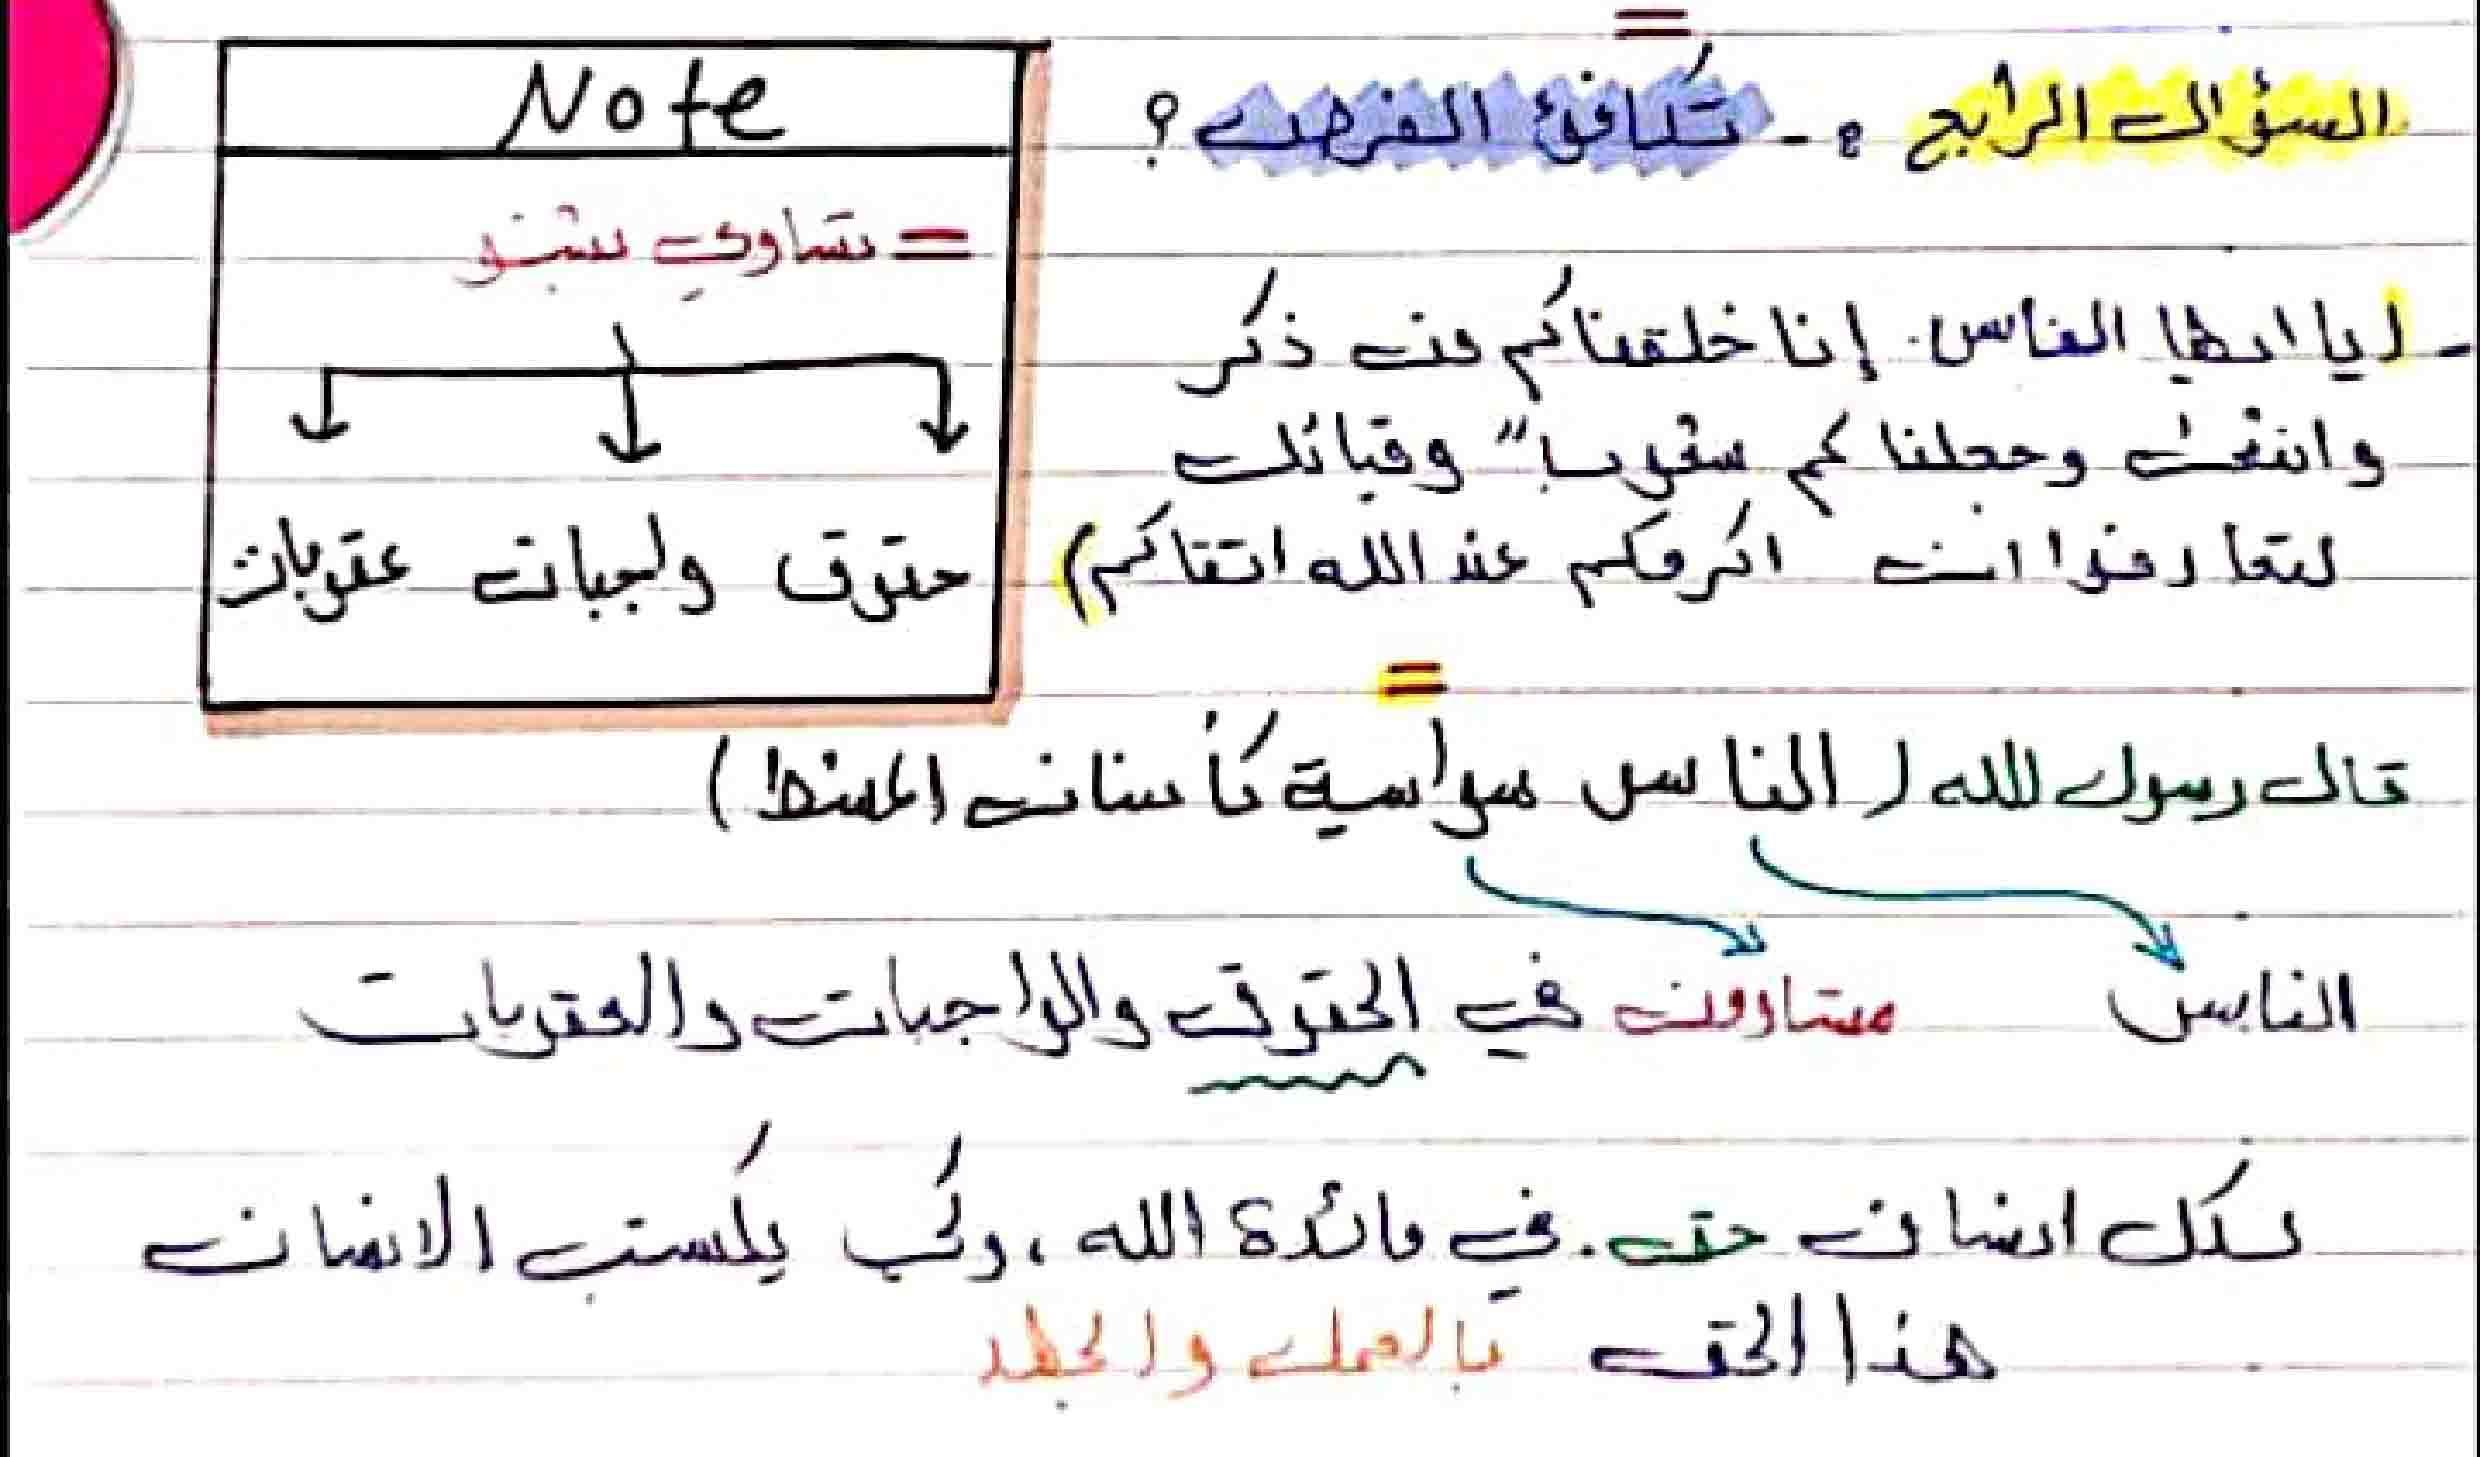 السؤال الرابع :- تكافؤ الفرص ؟
- (يا ايها الناس. إنا خلقناكم من ذكر
وانثى وجعلناكم شعوباً وقبائل
لتعارفوا ان اكرمكم عند الله اتقاكم)
Note
= تساوي بشنو
حقوق واجبات عقوبات
=
قال رسول الله (الناس سواسية كأسنان المشط)
الناس متساوون في الحقوق والواجبات والعقوبات
لكل انسان حق. في مائدة الله، وكي يكسب الانسان
هذا الحق بالعمل والجهد